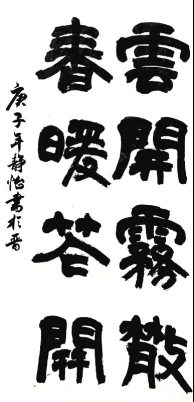 雲開霧散
春暖花開
庚子年靜怡書於晋